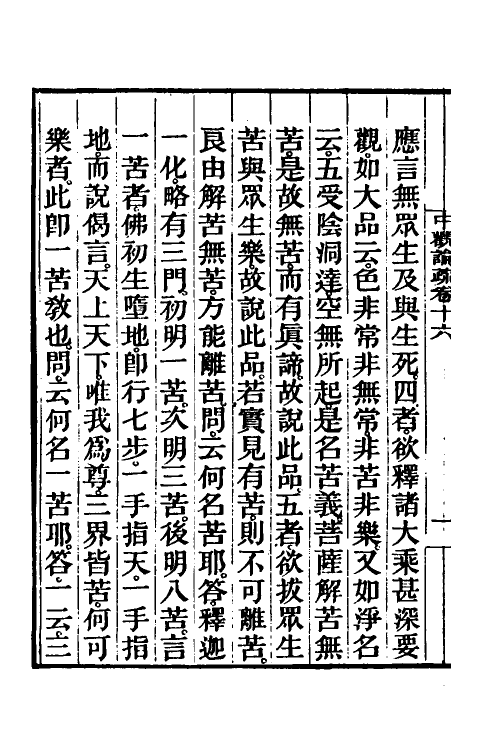 中觀論疏卷十六
應言無眾生及與生死。四者。欲釋諸大乘甚深要
觀。如大品云。色非常非無常。非苦非樂。又如淨名
云。五受陰洞達空無所起。是名苦義。菩薩解苦無
苦。是故無苦。而有眞諦。故說此品。五者。欲拔眾生
苦。與眾生樂。故說此品。若實見有苦。則不可離苦。
良由解苦無苦。方能離苦。問。云何名苦耶。答。釋迦
一化。略有三門。初明一苦。次明三苦。後明八苦。言
一苦者。佛初生墮地。卽行七步。一手指天。一手指
地。而說偈言。天上天下。唯我爲尊。三界皆苦。何可
樂者。此卽一苦敎也。問。云何名一苦耶。答。一云。三